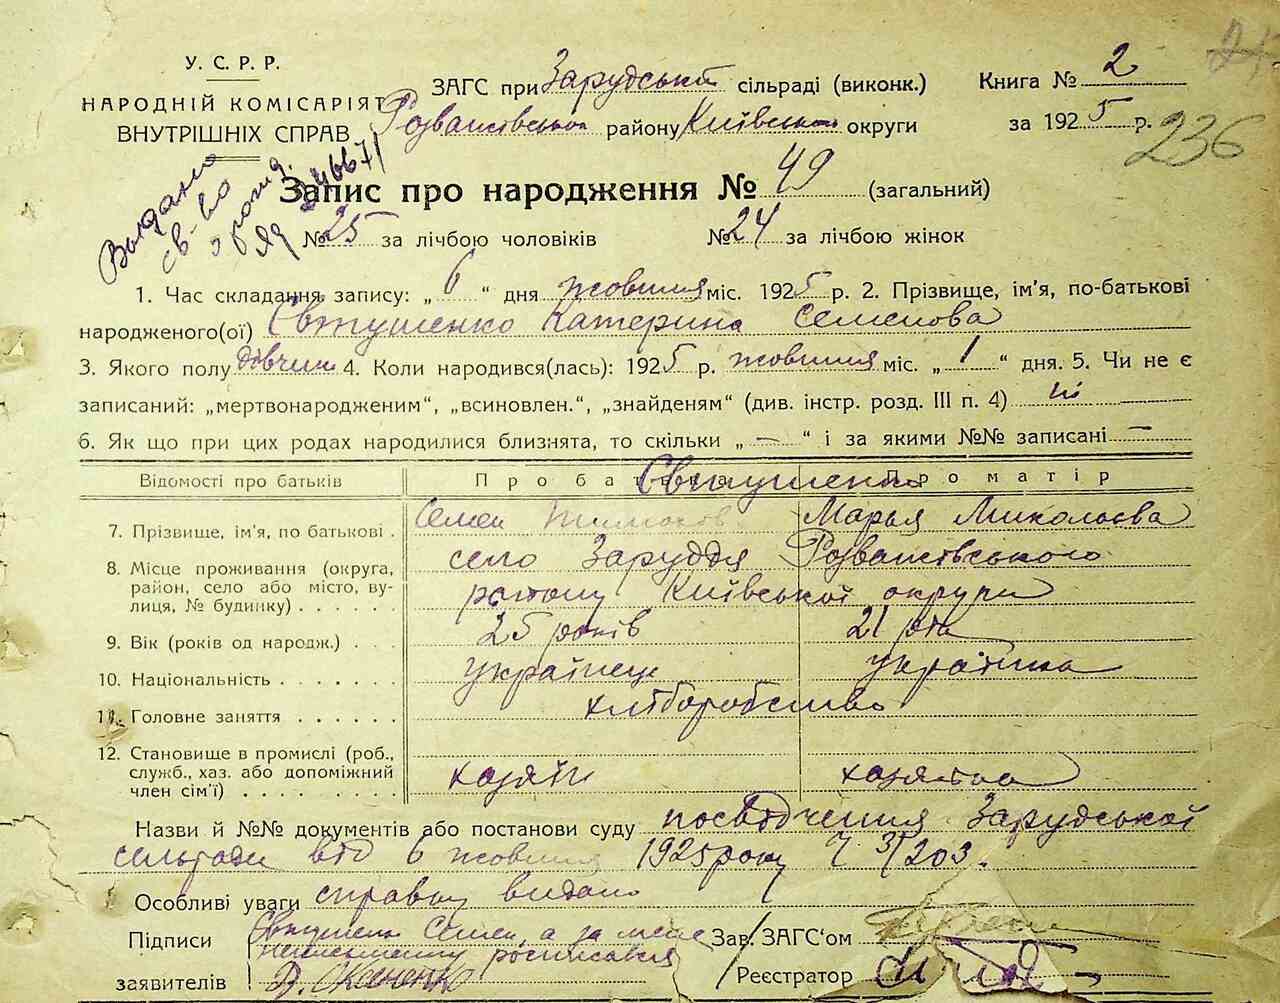 У. С. Р. Р.
НАРОДНІЙ КОМІСАРІЯТ
ВНУТРІШНІХ СПРАВ
ЗАГС при Зарудській сільраді (виконк.)
Розважівськ району Київської округи
Книга № 2
за 1925 р.
236
Выдано
св-во
о рожд.
Запис про народження № 49 (загальний)
№ 25 за лічбою чоловіків № 24 за лічбою жінок
1. Час складання запису: „ 6 “ дня жовтня міс. 1925 р. 2. Прізвище, ім'я, по-батькові
народженого(ої) Євтушенко Катерина Семенова
3. Якого полу дівчина 4. Коли народився(лась): 1925 р. жовтня міс. „ 1 “ дня. 5. Чи не є
записаний: „мертвонародженим“, „всиновлен.“, „знайденям“ (див. інстр. розд. III п. 4) ні
6. Як що при цих родах народилися близнята, то скільки „ — “ і за якими №№ записані —
Відомості про батьків Про батька Про матір
Євтушенко
7. Прізвище, ім'я, по батькові . Семен Марья Миколаєва
8. Місце проживання (округа, район, село або місто, вулиця, № будинку) . . . . . . село Заруддя Розважівського
району Київської округи
9. Вік (років од народж.) . . . 25 років 21 літ
10. Національність . . . . . . . українець українка
11. Головне заняття . . . . . . хліборобство
12. Становище в промислі (роб., служб., хаз. або допоміжний член сім'ї) . . . . . . . . . хазяїн хазяйка
Назви й №№ документів або постанови суду посвідчення Зарудської
сельради від 6 жовтня 1925 року Ч 31/203.
Особливі уваги справку видано
Підписи
заявителів
Євтушенко Семен, а за мене
неписьменну росписався
Зав. ЗАГС'ом
Реєстратор